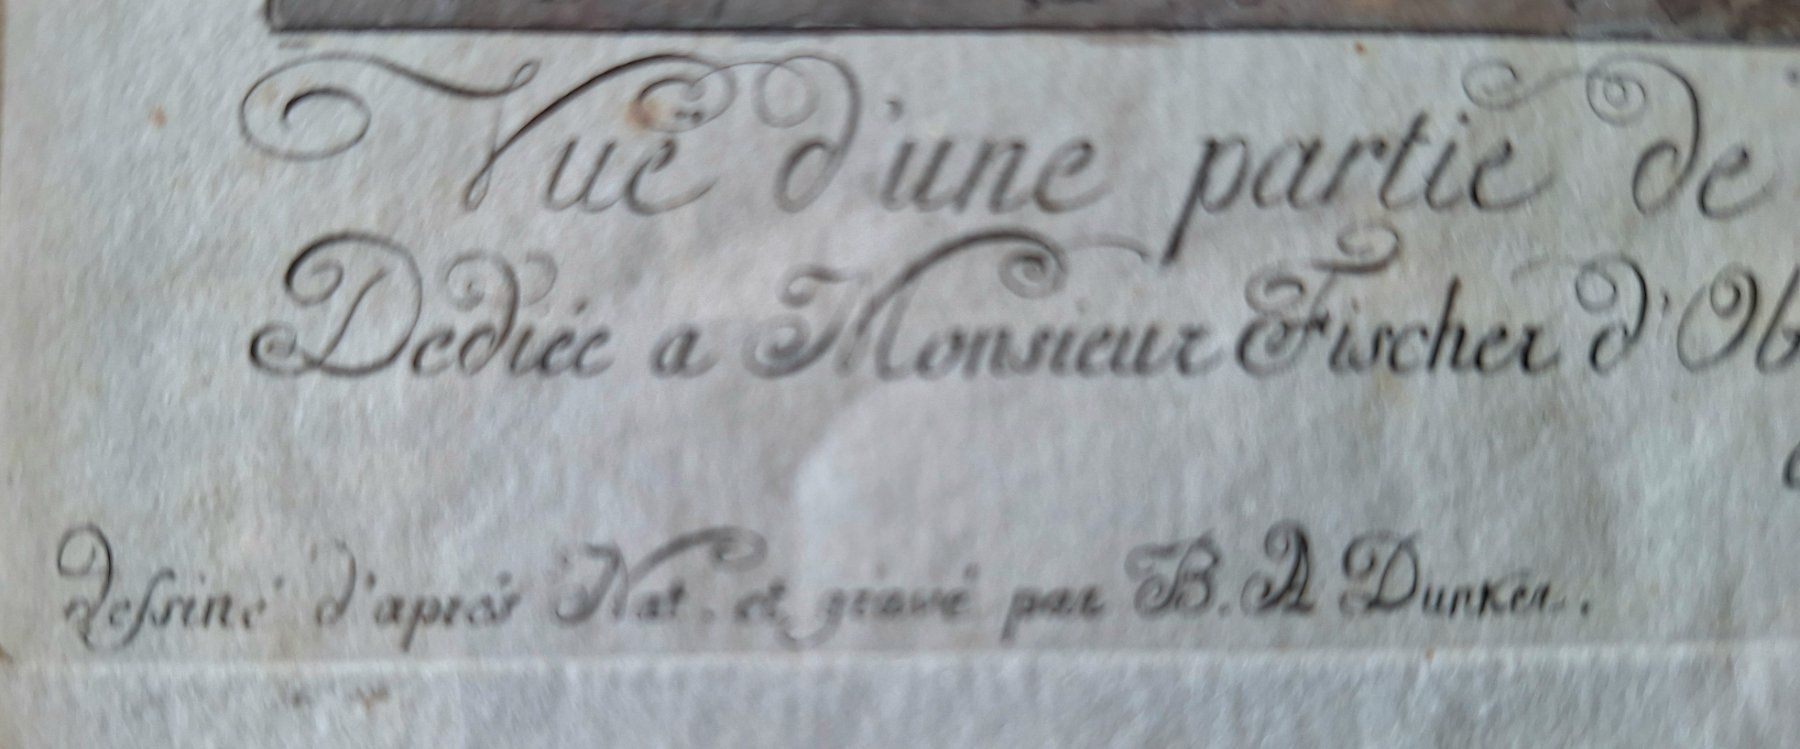 Vue d'une partie de
Dediée a Monsieur Fischer d'Ob
dessiné d'après Nat. et gravé par B. A Dunker.